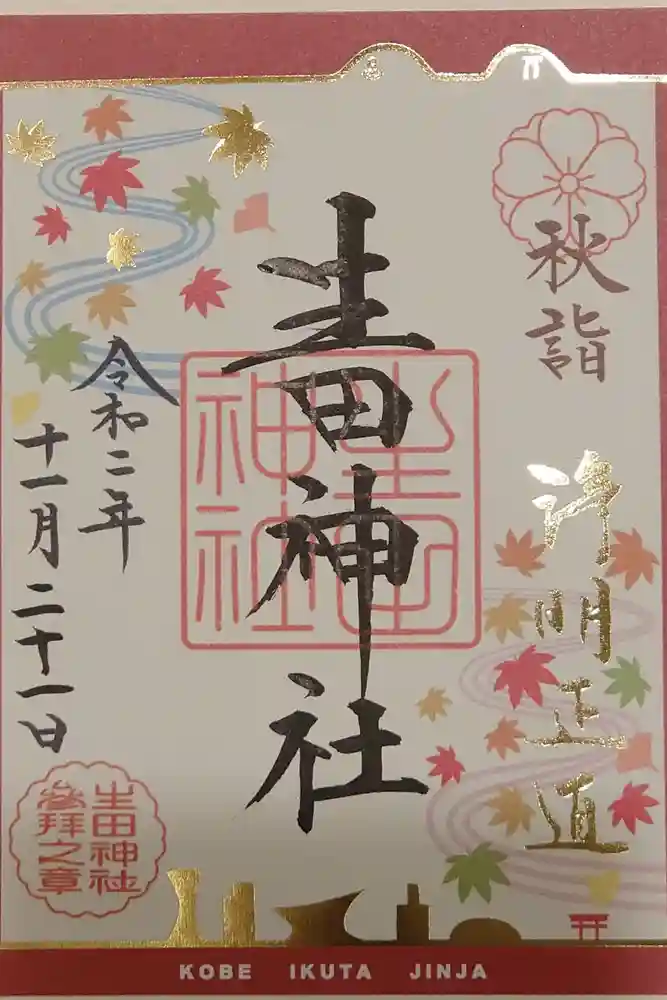 秋詣
浄明正道
生田神社
生田神社
令和二年
十一月二十一日
生田神社
参拝之章
KOBE IKUTA JINJA